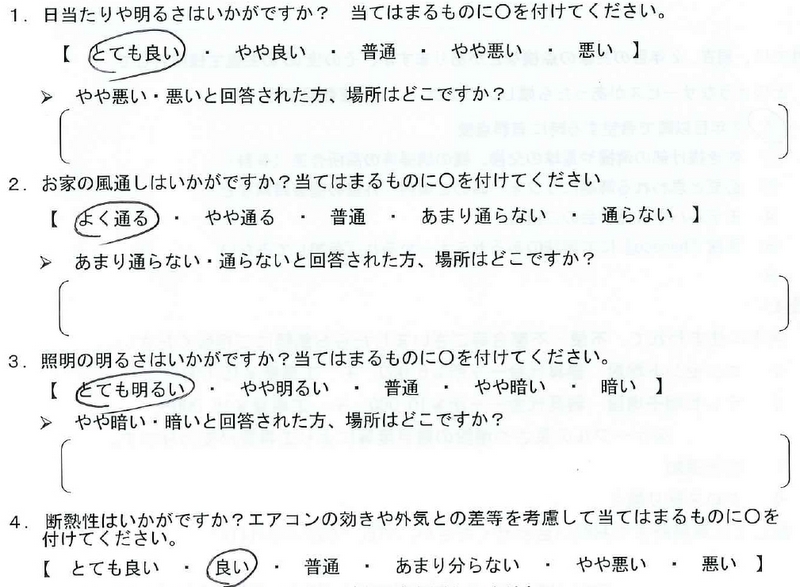 1. 日当たりや明るさはいかがですか？ 当てはまるものに〇を付けてください。
【 とても良い ・ やや良い ・ 普通 ・ やや悪い ・ 悪い 】
➢ やや悪い・悪いと回答された方、場所はどこですか？
2. お家の風通しはいかがですか？当てはまるものに〇を付けてください
【 よく通る ・ やや通る ・ 普通 ・ あまり通らない ・ 通らない 】
➢ あまり通らない・通らないと回答された方、場所はどこですか？
3. 照明の明るさはいかがですか？当てはまるものに〇を付けてください。
【 とても明るい ・ やや明るい ・ 普通 ・ やや暗い ・ 暗い 】
➢ やや暗い・暗いと回答された方、場所はどこですか？
4. 断熱性はいかがですか？エアコンの効きや外気との差等を考慮して当てはまるものに〇を
付けてください。
【 とても良い ・ 良い ・ 普通 ・ あまり分らない ・ やや悪い ・ 悪い 】